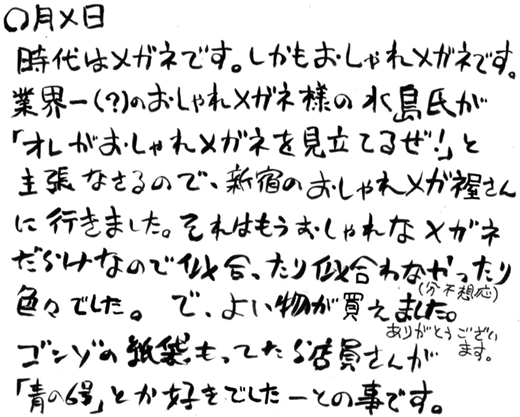 〇月×日
時代はメガネです。しかもおしゃれメガネです。
業界一(?)のおしゃれメガネ様の水島氏が
「オレがおしゃれメガネを見立てるぜ!」と
主張なさるので、新宿のおしゃれメガネ屋さん
に行きました。それはもうおしゃれなメガネ
だらけなので似合ったり似合わなかったり
色々でした。で、よい物が買えました。
(分不想応)
ありがとうござい
ます。
ゴンゾの紙袋もってたら店員さんが
「青の6号」とか好きでしたーとの事です。